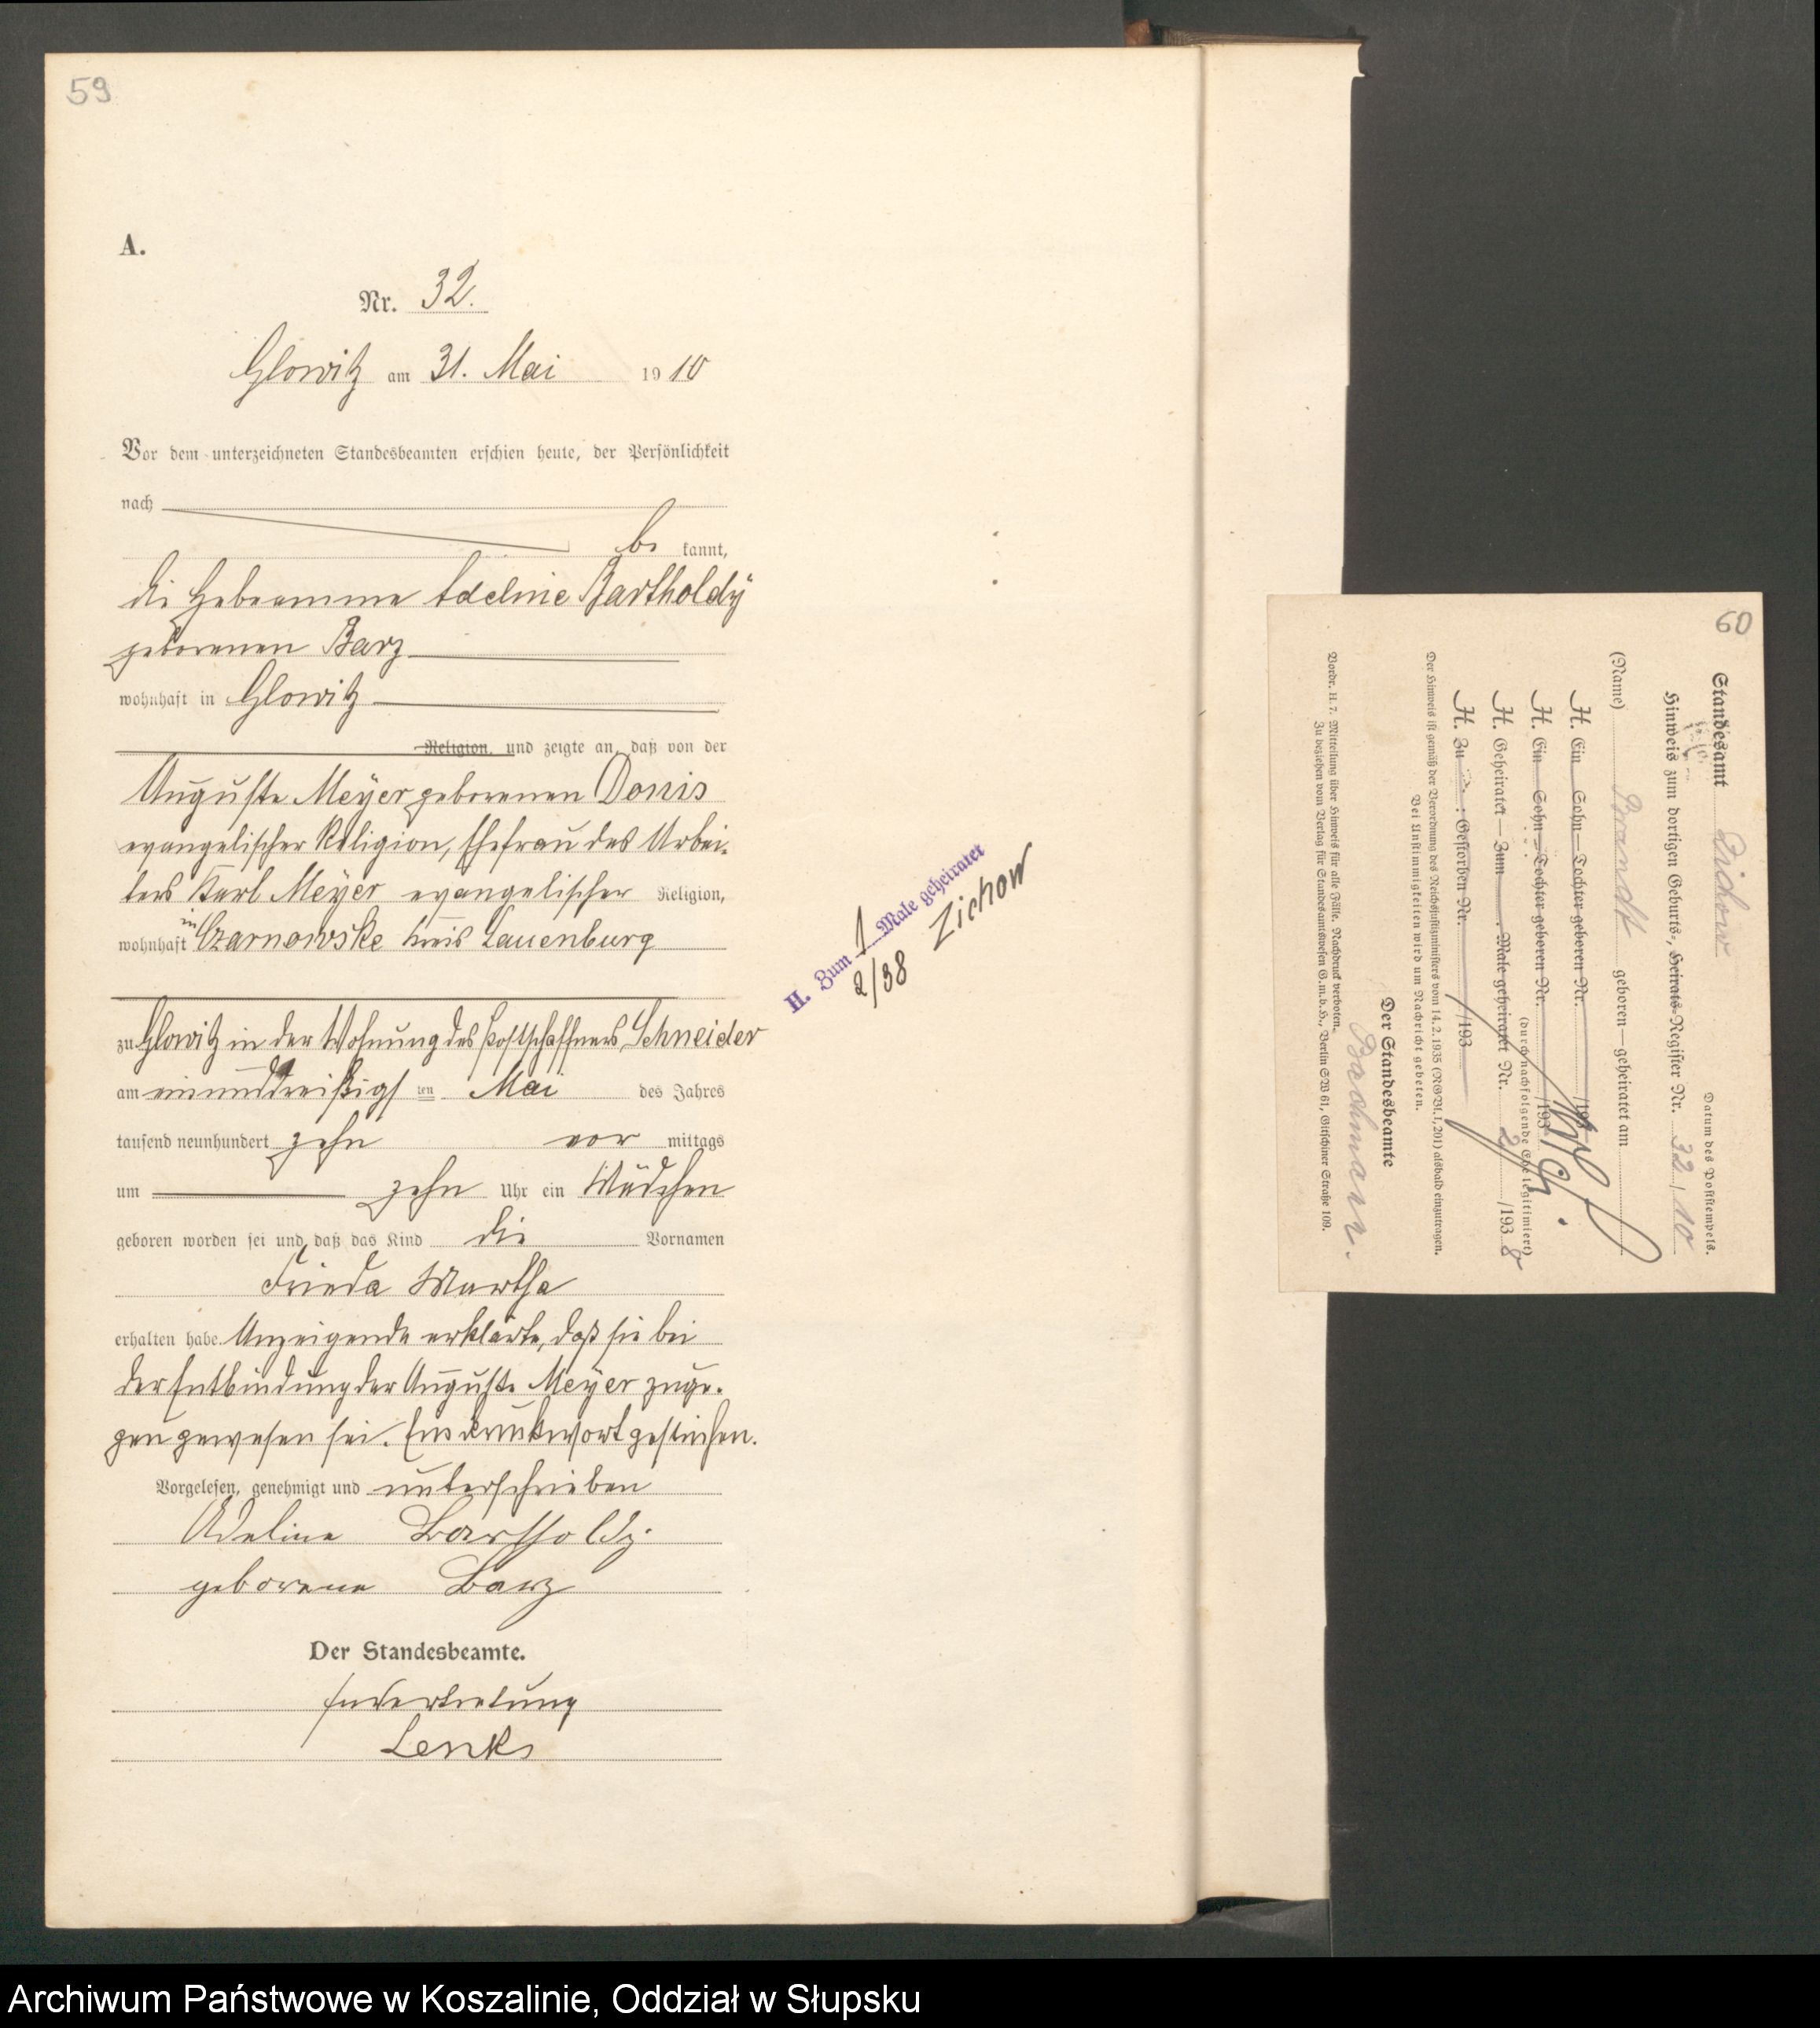 59
A.
Nr. 32.
Glowitz am 31. Mai 1910
Vor dem unterzeichneten Standesbeamten erschien heute, der Persönlichkeit
nach
be kannt,
die Hebeamme Adeline Bartholdÿ
geborenen Barz
wohnhaft in Glowitz
Religion, und zeigte an, daß von der
Auguste Meÿer geborenen Donis
evangelischer Religion, Ehefrau des Arbei-
ters Karl Meÿer evangelischer Religion,
wohnhaft in Czarnowske Kreis Lauenburg
zu Glowitz in der Wohnung des Postschaffners Schneider
am einunddreißigsten Mai des Jahres
tausend neunhundert zehn vor mittags
um zehn Uhr ein Mädchen
geboren worden sei und daß das Kind die Vornamen
Frieda Martha
erhalten habe. Anzeigende erklärte, daß sie bei
der Entbindung der Auguste Meÿer zuge-
gen gewesen sei. Ein Druckwort gestrichen.
Vorgelesen, genehmigt und unterschrieben
Adeline Bartholdy
geborene Barz
Der Standesbeamte.
In Vertretung
Lenks
II. Zum 1 Male geheiratet
2/38 Zichow
60
Datum des Poststempels.
Standesamt Zichow
Hinweis zum dortigen Geburts-, Heirats-Register Nr. 32/10
(Name) Brandt geboren — geheiratet am
H. Ein Sohn — Tochter geboren Nr. /193
H. Ein Sohn — Tochter geboren Nr. /193
(durch nachfolgende Ehe legitimiert)
H. Geheiratet — Zum Male geheiratet Nr. 2 /1938
H. Zu : Gestorben Nr. /193
Der Hinweis ist gemäß der Verordnung des Reichsjustizministers vom 14. 2. 1935 (RGBl. I, 201) alsbald einzutragen.
Bei Unstimmigkeiten wird um Nachricht gebeten.
Der Standesbeamte
Bachmann.
Vordr. H. 7. Mitteilung über Hinweis für alle Fälle. Nachdruck verboten.
Zu beziehen vom Verlag für Standesamtswesen G.m.b.H., Berlin SW 61, Gitschiner Straße 109.
Archiwum Państwowe w Koszalinie, Oddział w Słupsku